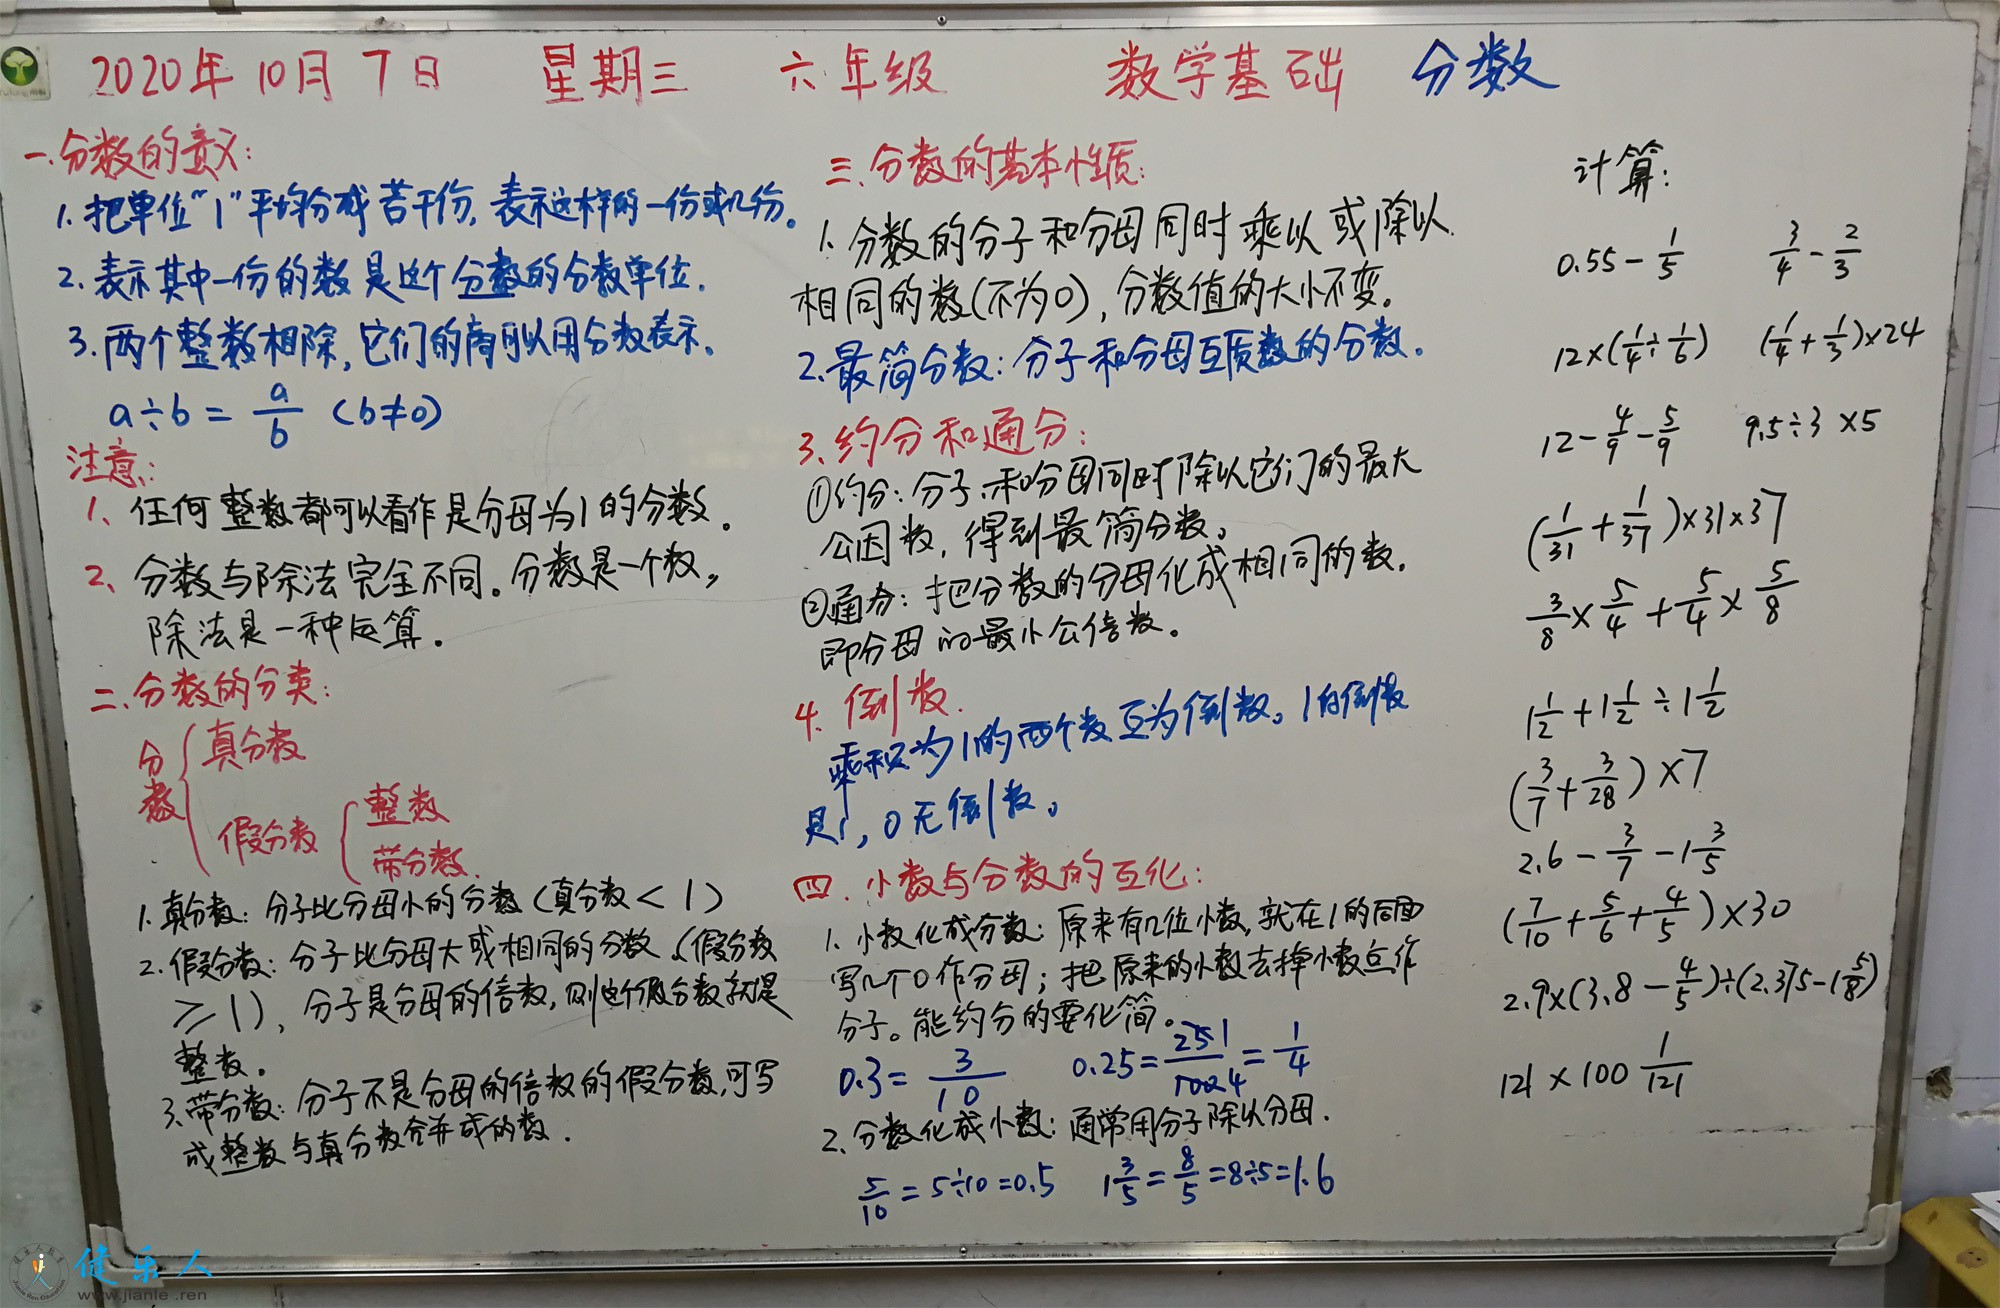 2020年10月7日 星期三 六年级 数学基础 分数
一.分数的意义:
1.把单位"1"平均分成若干份,表示这样的一份或几份。
2.表示其中一份的数是这个分数的分数单位.
3.两个整数相除,它们的商可以用分数表示。
a÷b = a/b (b≠0)
注意:
1、任何整数都可以看作是分母为1的分数。
2、分数与除法完全不同。分数是一个数,
除法是一种运算。
二.分数的分类:
分数 { 真分数
假分数 { 整数
带分数.
1.真分数:分子比分母小的分数(真分数<1)
2.假分数:分子比分母大或相同的分数、(假分数
≥1),分子是分母的倍数,则这个假分数就是
整数。
3.带分数:分子不是分母的倍数的假分数,可写
成整数与真分数合并成的数.
三.分数的基本性质:
1.分数的分子和分母同时乘以或除以
相同的数(不为0),分数值的大小不变。
2.最简分数:分子和分母互质数的分数。
3、约分和通分:
①约分:分子和分母同时除以它们的最大
公因数,得到最简分数。
②通分:把分数的分母化成相同的数.
即分母的最小公倍数。
4.倒数.
乘积为1的两个数互为倒数。1的倒数
是1,0无倒数。
四.小数与分数的互化:
1.小数化成分数:原来有几位小数,就在1的后面
写几个0作分母;把原来的小数去掉小数点作
分子。能约分的要化简。
0.3 = 3/10 0.25 = 25 1/100 4 = 1/4
2.分数化成小数:通常用分子除以分母.
5/10 = 5÷10 = 0.5 1 3/5 = 8/5 = 8÷5 = 1.6
计算:
0.55 - 1/5 3/4 - 2/3
12×(1/4÷1/6) (1/4+1/3)×24
12 - 4/9 - 5/9 9.5÷3×5
(1/31 + 1/37)×31×37
3/8 × 5/4 + 5/4 × 5/8
1 1/2 + 1 1/2 ÷ 1 1/2
(3/7 + 3/28)×7
2.6 - 3/7 - 1 3/5
(7/10 + 5/6 + 4/5)×30
2.9×(3.8 - 4/5)÷(2.375 - 1 5/8)
121 × 100 1/121
健乐人
www.jianle.ren